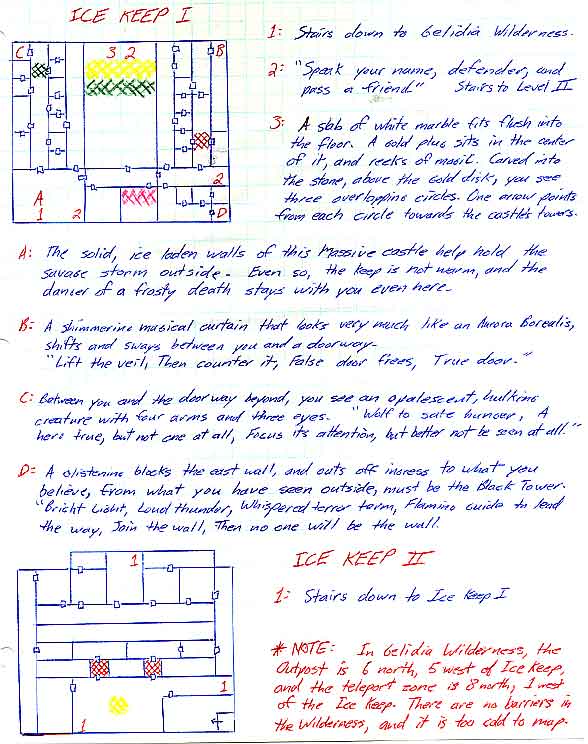 ICE KEEP I
C
3 2
B
A
1
2
2
D
1: Stairs down to Gelidia Wilderness.
2: "Speak your name, defender, and
pass a friend." Stairs to Level II
3: A slab of white marble fits flush into
the floor. A gold plug sits in the center
of it, and reeks of magic. Carved into
the stone, above the gold disk, you see
three overlapping circles. One arrow points
from each circle towards the castle's towers.
A: The solid, ice laden walls of this massive castle help hold the
savage storm outside. Even so, the keep is not warm, and the
danger of a frosty death stays with you even here.
B: A shimmering magical curtain that looks very much like an Aurora Borealis,
shifts and sways between you and a doorway.
"Lift the veil, Then counter it, False door frees, True door."
C: Between you and the doorway beyond, you see an opalescent, hulking
creature with four arms and three eyes. "Wolf to sate hunger, A
hero true, but not one at all, Focus its attention, but better not be seen at all."
D: A glistening blocks the east wall, and cuts off ingress to what you
believe, from what you have seen outside, must be the Black Tower.
"Bright Light, Loud thunder, Whispered terror form, Flaming guide to lend
the way, Join the wall, Then no one will be the wall.
1
1
1
ICE KEEP II
1: Stairs down to Ice Keep I
* NOTE: In Gelidia Wilderness, the
Outpost is 6 north, 5 west of Ice Keep,
and the teleport zone is 8 north, 1 west
of the Ice Keep. There are no barriers in
the Wilderness, and it is too cold to map.